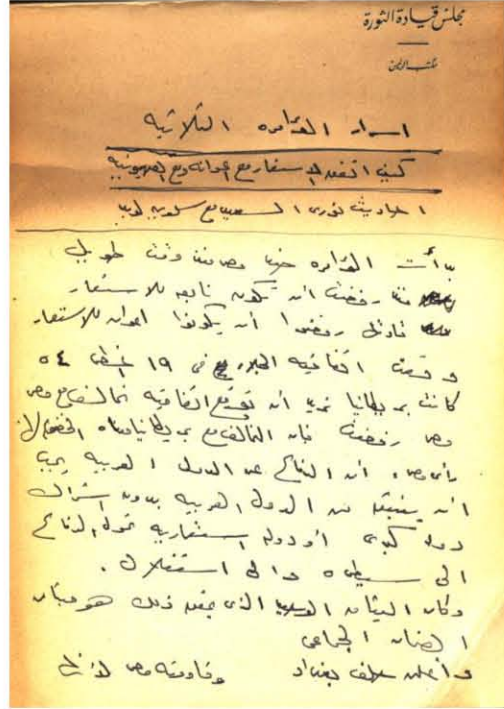 مجلس قيادة الثورة
مكتب الرئيس
اسرار المؤامره الثلاثيه
كيف اتفق الاستعمار مع اعوانه ومع الصهيونيه
احاديث نورى السعيد مع سلوين لويد
بدأت المؤامره ضد مصر منذ وقت طويل
منذ رفضت ان تكون تابعه للاستعمار
رفضوا أن يكونوا اعوان للاستعمار
وقعت اتفاقيه الجلاء فى ١٩ ٥٤
كانت بريطانيا تريد أن توقع اتفاقيه تحالف مع مصر
ومصر رفضت فإن التحالف مع بريطانيا معناه الخضوع لها
رأى مصر ان الدفاع عن الدول العربيه يجب
ان ينبثق من الدول العربيه بدون اشتراك
دوله كبرى أو دوله استعماريه تحول الدفاع
الى سيطره والى استغلال .
وكان الميثاق الذى يحقق ذلك هو ميثاق
الضمان الجماعى
واعلن حلف بغداد وقاومته مصر لأنه